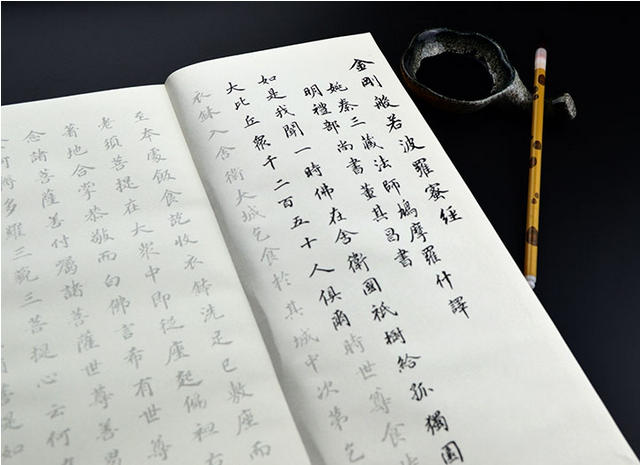 金剛般若波羅蜜經
姚秦三藏法師鳩摩羅什譯
明禮部尚書董其昌書
如是我聞一時佛在舍衛國祇樹給孤獨園
大比丘眾千二百五十人俱爾時世尊食時
衣鉢入舍衛大城乞食於其城中次第乞
至本處飯食訖收衣鉢洗足已敷座而
老須菩提在大眾中即從座起偏袒右
著地合掌恭敬而白佛言希有世尊
念諸菩薩善付囑諸菩薩世尊善男
阿耨多羅三藐三菩提心云何